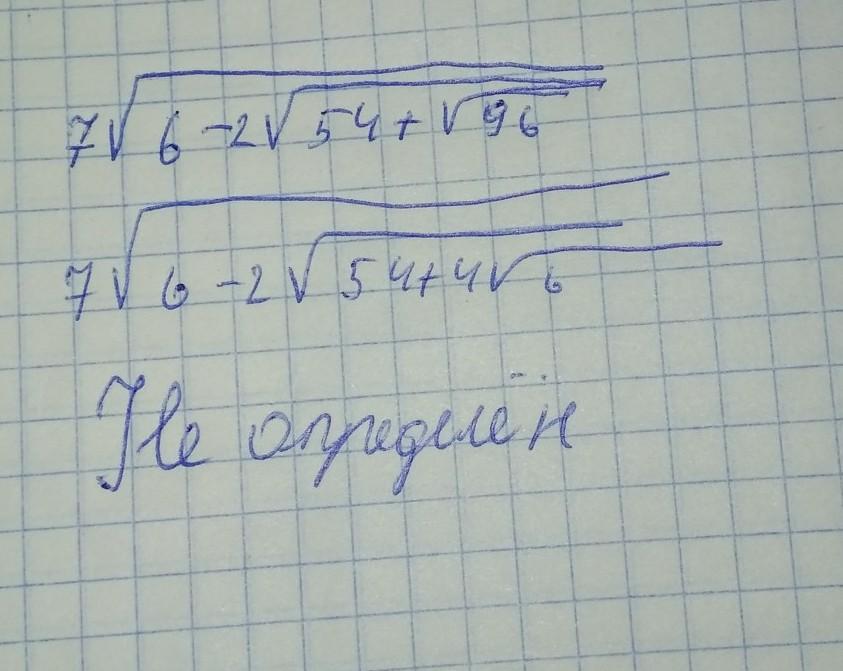 7√6-2√54+√96
7√6-2√54+4√6
Не определён